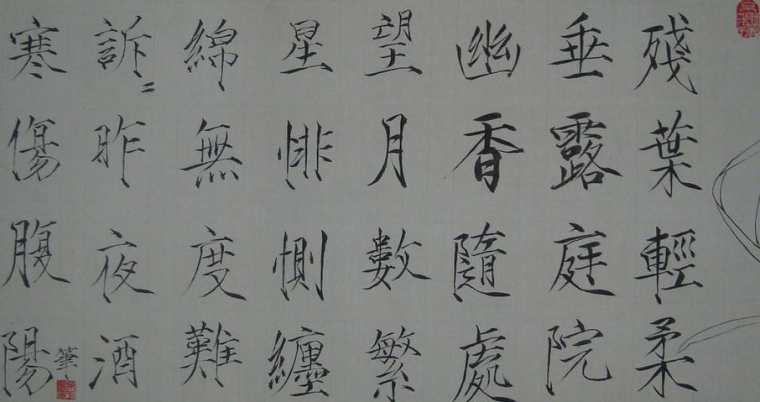 殘葉輕柔
垂露庭院
幽香隨處
望月數繁
星悱惻纏
綿無度難
訴〻昨夜酒
寒傷腹陽
筆